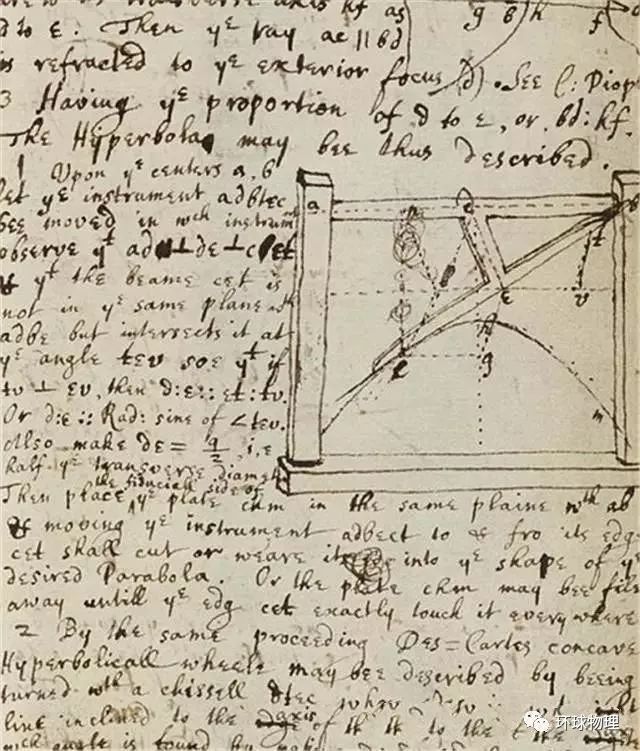 are to ye transverse axis hf as
d to e. Then ye ray ac || bd
is refracted to ye exterior focus (d). See C: Diopt
3 Having ye proportion of d to e, or, bd: hf.
The Hyperbola may bee thus described.
1 Upon ye centers a, b
let ye instrument adbtec
bee moved in wch instrumt
observe yt ad ⊥ de ⊥ cet
& yt the beame cet is
not in ye same plane wth
adbe but intersects it at
ye angle tev soe yt if
tv ⊥ ev, then d:e::et:tv.
Or d:e :: Rad: sine of ∠tev.
Also make de = q/2 i.e
half ye transverse diameter
the fiduciall side of
Then place ye plate chm in the same plaine wth ab
& moving ye instrument adbect to & fro its edg
cet shall cut or weare it into ye shape of ye
desired Parabola. Or the plate chm may bee filed
away untill ye edg cet exactly touch it everywhere
2 By the same proceeding Des=Cartes concave
Hyperbolicall wheele may bee described by beeing
turned wth a chissell dtec
line inclined to the axis of to the
wch angle is found by
g h f
a c b
e t v
h
g
m
环球物理